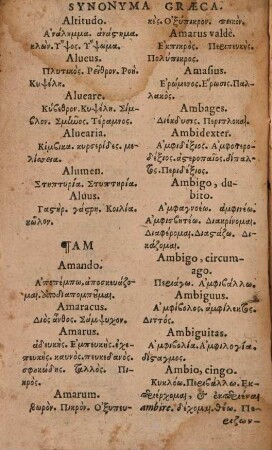 SYNONYMA GRÆCA.
Altitudo.
Ἀνάλημμα. ἀνάστημα.
κλων. Ὕψος. Ὕψωμα.
Alueus.
Πλυτικός. Ρεῖθρον. Ροή.
Κυψέλη.
Alueare.
Κύβεθρον. Κυψέλη. Σίμ-
βλον. Σμῆνος. Τέραμνος.
Aluearia.
κυψερίδες. με-
λίσσεια.
Alumen.
Στυπτηρία. Στυπτηρία.
Aluus.
Γαστήρ. γάστρη. Κοιλία.
κῶλον.
¶AM
Amando.
Ἀποπέμπω. ἀποσκευάζο-
μαι. ἀποδιαπομποῦμαι.
Amaracus.
Διὸς ἄνθος. Σάμψυχον.
Amarus.
ἀδευκής. Ἐμπευκής. ἐχε-
πευκής. καυνός. πευκεδανός.
Πι-
κρός.
Amarum.
Πικρὸν. Ὀξυπευ-
κὲς. Ὀξύπικρον. πευκίν.
Amarus valdè.
Ἔκπικρος. Περιπευκὴς
Πολύπικρος.
Amasius.
Ἐρώμενος. Ἔρως. Παλ-
λακός.
Ambages.
Διέκδυσις. Περιπλοκαί.
Ambidexter.
Ἀμφιδέξιος. Ἀμφοτερο-
δέξιος. ἀστεροπαῖος. διπαλ-
τος. Περιδέξιος.
Ambigo, du-
bito.
Ἀμφαγνοέω. ἀμφιέπω.
ἀμφισβητέω. Διακρίνομαι.
Διαφέρομαι. Διστάζω. Δι-
κάζομαι.
Ambigo, circum-
ago.
Περιάγω. Ἀμφιβάλλω.
Ambiguus.
Ἀμφίβολος. ἀμφίλεκτος.
Διττός.
Ambiguitas.
Ἀμφιβολία. Ἀμφιλογία.
δισταγμος.
Ambio, cingo.
Κυκλόω. Περιβάλλω. Ἐκ-
περιέρχομαι, &
ambire. δέχομαι. θέω. Πε-
ριζων-